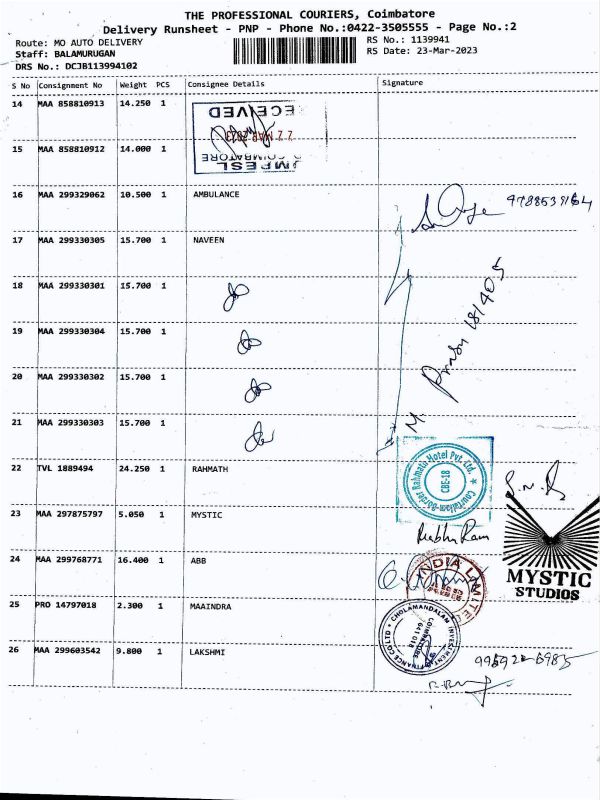 THE PROFESSIONAL COURIERS, Coimbatore
Delivery Runsheet - PNP - Phone No.:0422-3505555 - Page No.:2
Route: MO AUTO DELIVERY RS No.: 1139941
Staff: BALAMURUGAN RS Date: 23-Mar-2023
DRS No.: DCJB113994102
S No Consignment No Weight PCS Consignee Details Signature
14 MAA 858810913 14.250 1
RECEIVED
15 MAA 858810912 14.000 1
COIMBATORE
16 MAA 299329062 10.500 1 AMBULANCE
17 MAA 299330305 15.700 1 NAVEEN
18 MAA 299330301 15.700 1
19 MAA 299330304 15.700 1
20 MAA 299330302 15.700 1
21 MAA 299330303 15.700 1
22 TVL 1889494 24.250 1 RAHMATH
Courtallam-Border Rahmath Hotel Pvt. Ltd.
CBE-18
23 MAA 297875797 5.050 1 MYSTIC
24 MAA 299768771 16.400 1 ABB
INDIA LIMITE
MYSTIC
STUDIOS
25 PRO 14797018 2.300 1 MAAINDRA
CHOLAMANDALAM INVESTMENT
FINANCE CO LTD
COIMBATORE
26 MAA 299603542 9.800 1 LAKSHMI